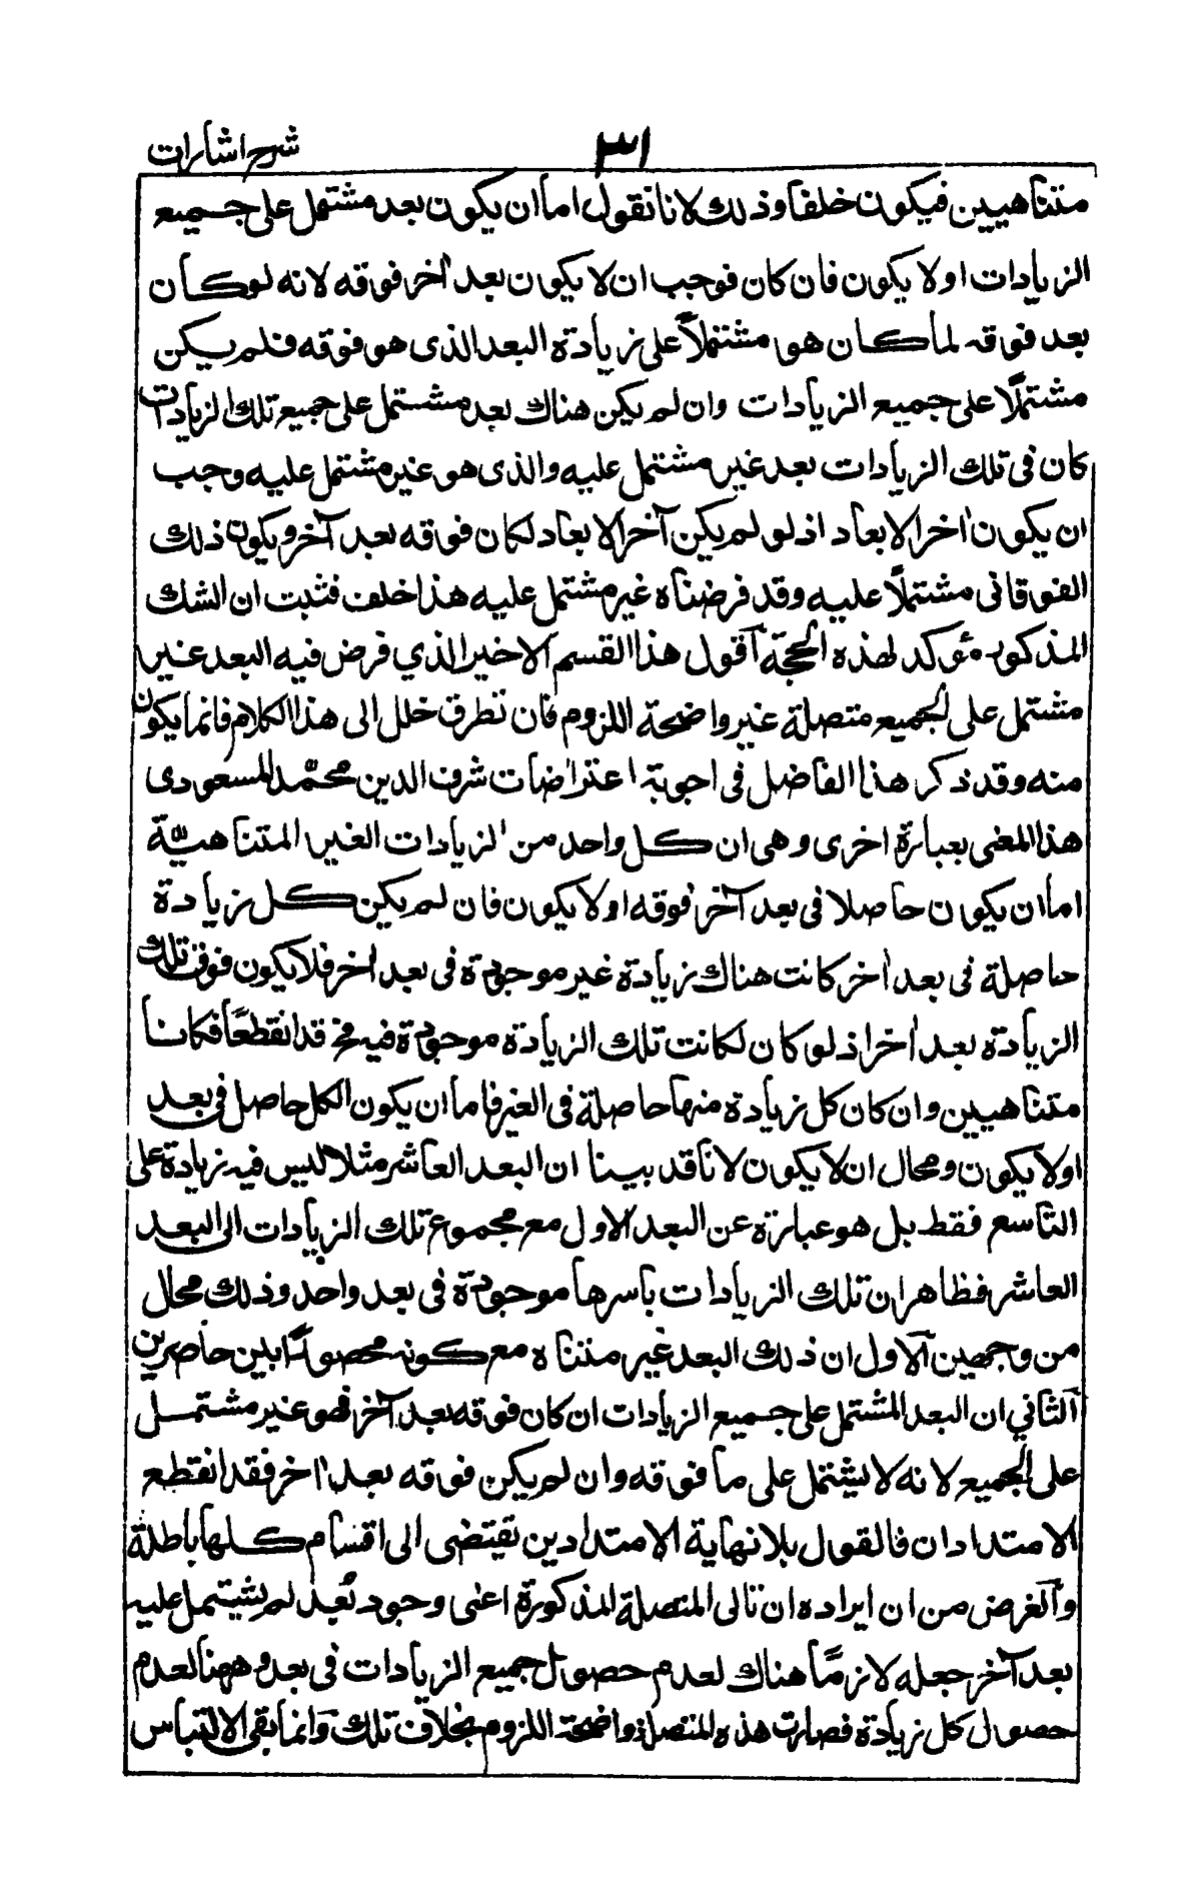 شرح اشارات
٣١
متناهيين فيكون خلفا وذلك لانا نقول اما ان يكون بعد مشتمل على جميع
الزيادات اولا يكون فان كان فوجب ان لا يكون بعد اخر فوقه لانه لو كان
بعد فوقه لما كان هو مشتملاً على زيادة البعد الذى هو فوقه فلم يكن
مشتملًا على جميع الزيادات وان لم يكن هناك بعد مشتمل على جميع تلك الزيادات
كان فى تلك الزيادات بعد غير مشتمل عليه والذى هو غير مشتمل عليه وجب
ان يكون اخر الابعاد اذ لو لم يكن آخر الابعاد لكان فوقه بعد آخر ويكون ذلك
الفوقانى مشتملاً عليه وقد فرضناه غير مشتمل عليه هذا خلف فثبت ان الشك
المذكور مؤكد لهذه الحجة آقول هذا القسم الاخير الذي فرض فيه البعد غير
مشتمل على الجميع متصلة غير واضحة اللزوم فان تطرق خلل الى هذا الكلام فانما يكون
منه وقد ذكر هذا الفاضل فى اجوبة اعتراضات شرف الدين محمّد المسعودى
هذا المعنى بعبارة اخرى وهى ان كل واحد من الزيادات الغير المتناهيّة
اما ان يكون حاصلا فى بعد آخر فوقه اولا يكون فان لم يكن كل زيادة
حاصلة فى بعد اخر كانت هناك زيادة غير موجودة فى بعد اخر فلا يكون فوق تلك
الزيادة بعد اخر اذ لو كان لكانت تلك الزيادة موجودة فيه فح قد انقطعًا فكانا
متناهيين وان كان كل زيادة منها حاصلة فى الغير فاما ان يكون الكل حاصل فى بعد
اولا يكون ومحال ان لا يكون لانا قد بينا ان البعد العاشر مثلا ليس فيه زيادة على
التاسع فقط بل هو عبارة عن البعد الاول مع مجموع تلك الزيادات الى البعد
العاشر فظاهر ان تلك الزيادات بأسرها موجودة فى بعد واحد وذلك محال
من وجهين آلاول ان ذلك البعد غير متناه مع كونه محصورًا بين حاصرين
آلثاني ان البعد المشتمل على جميع الزيادات ان كان فوقه بعد آخر فهو غير مشتمل
على الجميع لانه لا يشتمل على ما فوقه وان لم يكن فوقه بعد اخر فقد انقطع
الامتدادان فالقول بلا نهاية الامتدادين تقتضى الى اقسام كلها باطلة
وآلغرض من ان ايراده ان تالى المتصلة المذكورة اعنى وجود بُعد لم يشتمل عليه
بعد آخر جعله لازمًا هناك لعدم حصول جميع الزيادات فى بعد وههنا لعدم
حصول كل زيادة فصارت هذه المتصلة واضحة اللزوم بخلاف تلك وَانما بقى الالتباس